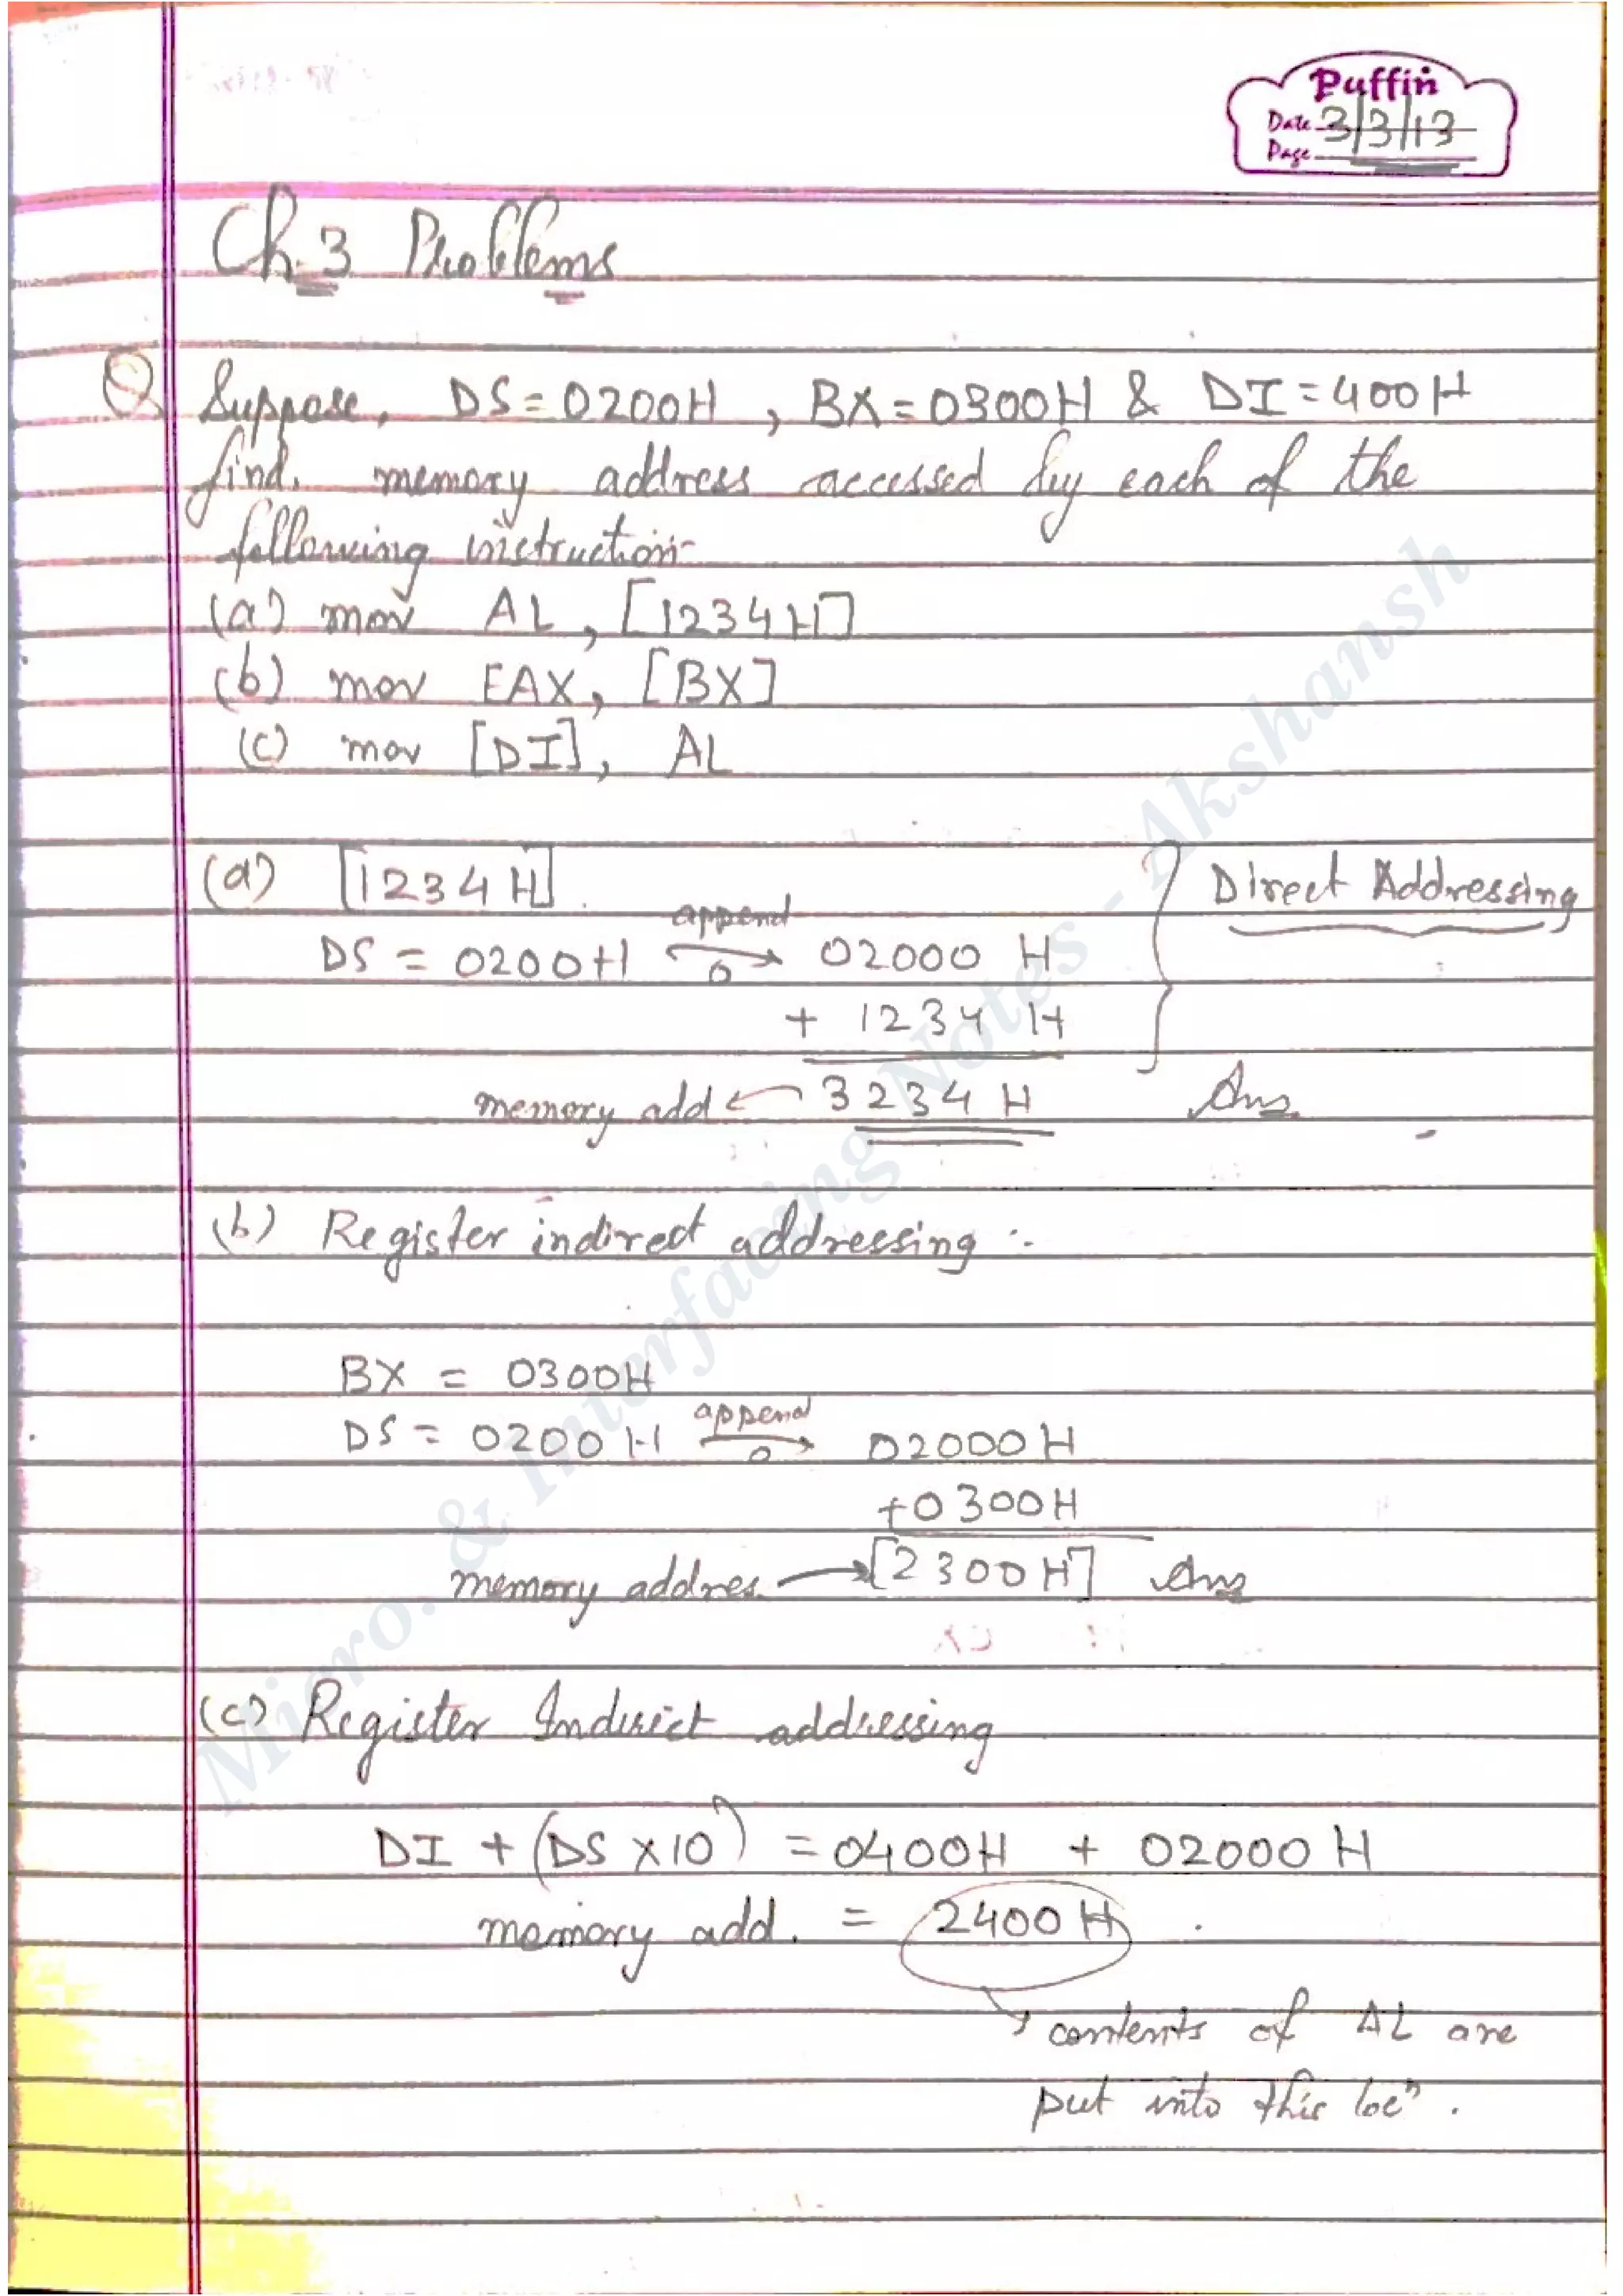 Puffin
Date 3/3/13
Page
Ch. 3 Problems
Q Suppose, DS = 0200H, BX = 0300H & DI = 400H
find. memory address accessed by each of the
following instruction-
(a) mov AL, [1234H]
(b) mov EAX, [BX]
(c) mov [DI], AL
(a) [1234H]
Direct Addressing
append
DS = 0200H → 02000 H
0
+ 1234 H
memory add ← 3234 H Ans
(b) Register indirect addressing :-
BX = 0300H
append
DS = 0200H → 02000H
0
+0300H
memory addres. → [2300H] Ans
(c) Register Indirect addressing
DI + (DS X10) = 0400H + 02000H
memory add. = 2400H .
contents of AL are
put into this locⁿ.
Micro. & Interfacing Notes - Akshansh